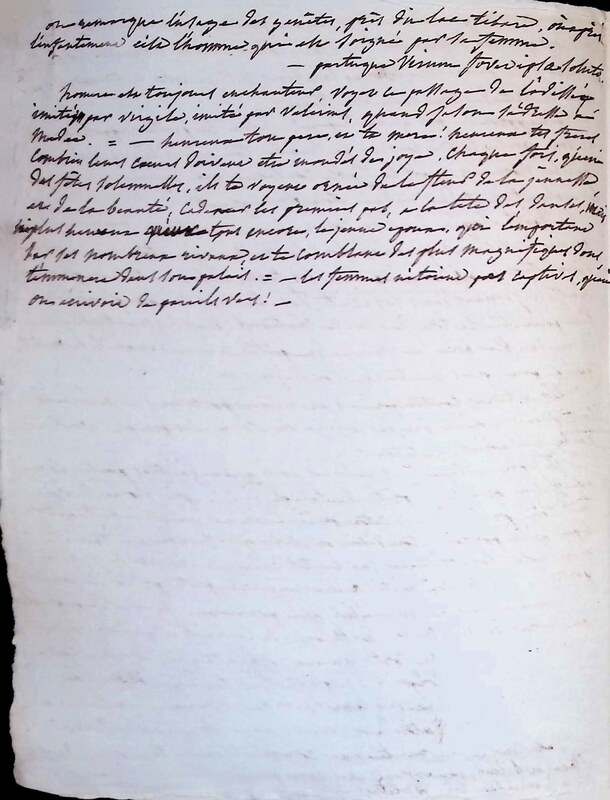 on remarque l'usage des genètes, près du lac tibare, où après
l'enfantement c'est l'homme qui est soigné par sa femme.
— partuque virum fovet ipsa soluto
homere est toujours enchanteur, voyez ce passage de l'odissée
imité par virgile, imité par valerius, quand jason s'adresse à
medée. = — heureux ton pere, et ta mere! heureux tes freres
combien leurs coeurs doivent etre inondés de joye, chaque fois, qu'en
des fêtes solemnelles, ils te voyent ornée de la fleur de la jeunesse
et de la beauté, cadencer les premiers pas, a la tête des danses, mais
plus heureux encore, le jeune epoux, qui l'emportant
sur ses nombreux rivaux, et te comblant des plus magnifiques dons
t'emmenera dans son palais. = — les femmes n'etoient pas captives, quand
on ecrivoit de pareils vers! —